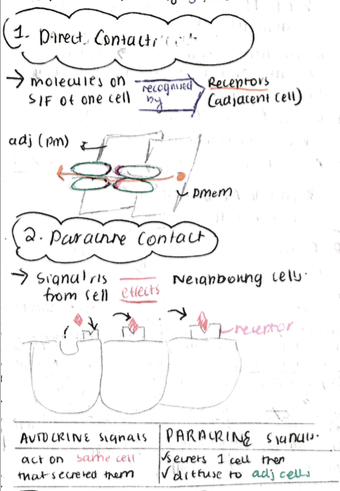 1. Direct Contact
→ molecules on recognised Receptors
SIF of one cell by (adjacent cell)
adj (pm)
Dmem
2. Paracrine Contact
→ Signal Neighbouring cells.
from cell effects
?
receptor
AUTOCRINE signals PARACRINE signals.
act on same cell ✓secrets 1 cell then
that secreted them ✓diffuse to adj cells